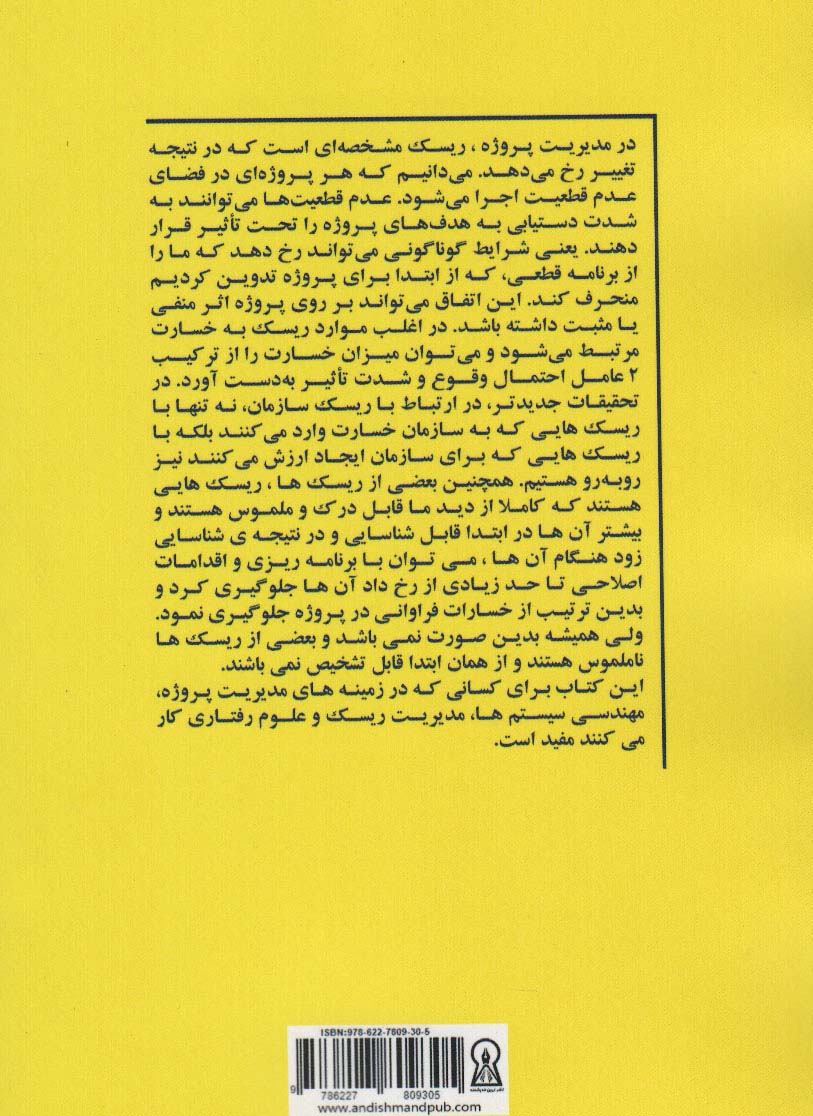 در مدیریت پروژه ، ریسک مشخصه‌ای است که در نتیجه
تغییر رخ می‌دهد. می‌دانیم که هر پروژه‌ای در فضای
عدم قطعیت اجرا می‌شود. عدم قطعیت‌ها می‌توانند به
شدت دستیابی به هدف‌های پروژه را تحت تأثیر قرار
دهند. یعنی شرایط گوناگونی می‌تواند رخ دهد که ما را
از برنامه قطعی، که از ابتدا برای پروژه تدوین کردیم
منحرف کند. این اتفاق می‌تواند بر روی پروژه اثر منفی
یا مثبت داشته باشد. در اغلب موارد ریسک به خسارت
مرتبط می‌شود و می‌توان میزان خسارت را از ترکیب
۲ عامل احتمال وقوع و شدت تأثیر به‌دست آورد. در
تحقیقات جدیدتر، در ارتباط با ریسک سازمان، نه تنها با
ریسک هایی که به سازمان خسارت وارد می‌کنند بلکه با
ریسک هایی که برای سازمان ایجاد ارزش می‌کنند نیز
روبه‌رو هستیم. همچنین بعضی از ریسک ها ، ریسک هایی
هستند که کاملا از دید ما قابل درک و ملموس هستند و
بیشتر آن ها در ابتدا قابل شناسایی و در نتیجه ی شناسایی
زود هنگام آن ها ، می توان با برنامه ریزی و اقدامات
اصلاحی تا حد زیادی از رخ داد آن ها جلوگیری کرد و
بدین ترتیب از خسارات فراوانی در پروژه جلوگیری نمود.
ولی همیشه بدین صورت نمی باشد و بعضی از ریسک ها
ناملموس هستند و از همان ابتدا قابل تشخیص نمی باشند.
این کتاب برای کسانی که در زمینه های مدیریت پروژه،
مهندسی سیستم ها، مدیریت ریسک و علوم رفتاری کار
می کنند مفید است.
ISBN:978-622-7809-30-5
9 786227 809305
www.andishmandpub.com